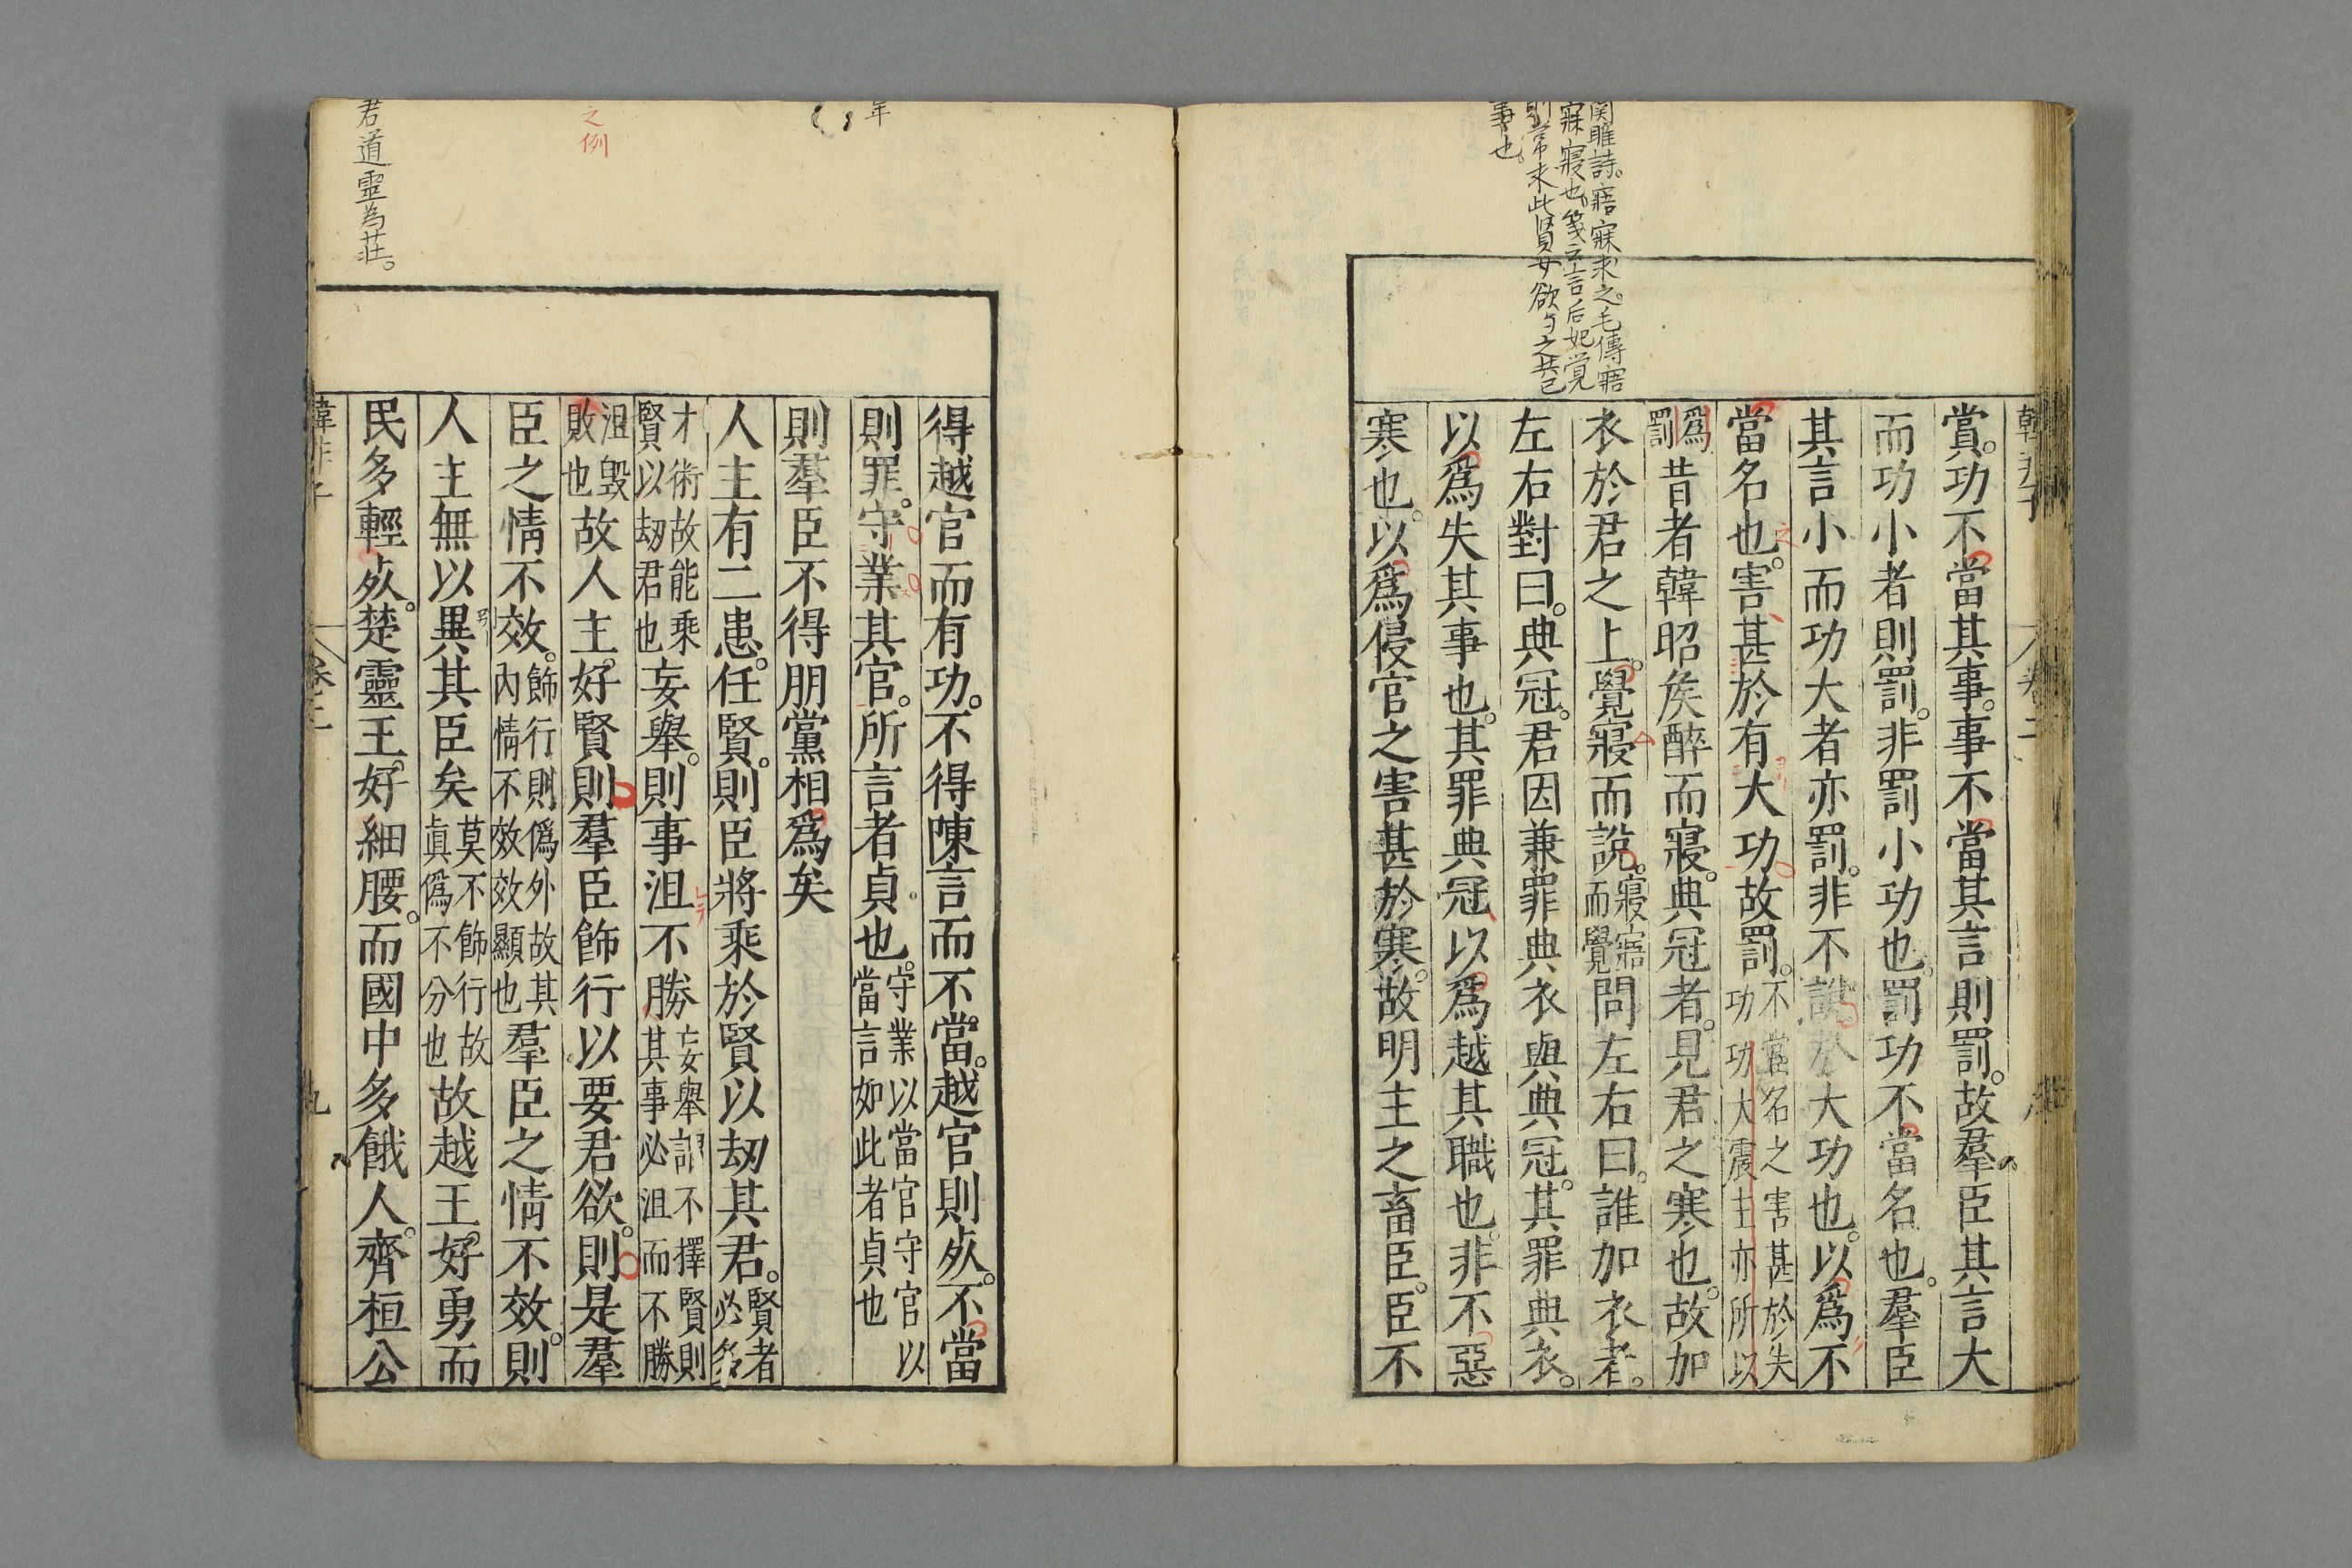 関雎詩。寤寐求之。毛傳寤
寐寢也。箋云言后妃覚
則常求此賢女欲与之共己
事也。
韓非子 卷二
賞。功不當其事。事不當其言則罰。故羣臣其言大
而功小者則罰。非罰小功也。罰功不當名也。羣臣
其言小而功大者亦罰。非不說於大功也。以爲不
當名也。害甚於有大功故罰。不當名之害甚於失
功功大震主亦所以
爲
罰
昔者韓昭矦醉而寢。典冠者。見君之寒也。故加
衣於君之上。覺寢而說。寢寤
而覺
問左右曰。誰加衣者。
左右對曰。典冠。君因兼罪典衣與典冠。其罪典衣。
以爲失其事也。其罪典冠以爲越其職也。非不惡
寒也。以爲侵官之害甚於寒。故明主之畜臣。臣不
年
之例
君道靈為莊。
得越官而有功。不得陳言而不當。越官則死。不當
則罪。守業其官。所言者貞也。守業以當官守官以
當言如此者貞也
則羣臣不得朋黨相爲矣
人主有二患。任賢。則臣將乘於賢以劫其君。賢者
必多
才術故能乘
賢以劫君也
妄舉。則事沮不勝妄舉謂不擇賢則
其事必沮而不勝
沮毀
敗也
故人主。好賢則羣臣飾行以要君欲。則是羣
臣之情不效。飾行則僞外故其
內情不效效顯也
羣臣之情不效。則
人主無以異其臣矣莫不飾行故
眞僞不分也
故越王。好勇而
民多輕死。楚靈王。好細腰。而國中多餓人。齊桓公
韓非子 卷二 九